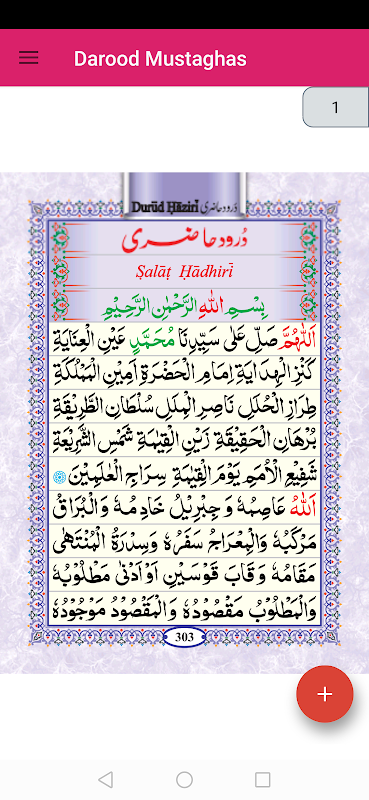 Darood Mustaghas
1
Durūd Ḥāzirī دُرود حاضری
دُرود حاضری
Ṣalāṭ Ḥādhirī
بِسْمِ اللهِ الرَّحْمٰنِ الرَّحِيْمِ
اَللّٰهُمَّ صَلِّ عَلٰى سَيِّدِنَا مُحَمَّدٍ عَيْنِ الْعِنَايَةِ
كَنْزِ الْهِدَايَةِ اِمَامِ الْحَضْرَةِ اَمِيْنِ الْمَمْلَكَةِ
طِرَازِ الْحُلَلِ نَاصِرِ الْمِلَلِ سُلْطَانِ الطَّرِيْقَةِ
بُرْهَانِ الْحَقِيْقَةِ زَيْنِ الْقِيٰمَةِ شَمْسِ الشَّرِيْعَةِ
شَفِيْعِ الْاُمَمِ يَوْمَ الْقِيٰمَةِ سِرَاجِ الْعٰلَمِيْنَ
اَللهُ عَاصِمُهٗ وَ جِبْرِيْلُ خَادِمُهٗ وَ الْبُرَاقُ
مَرْكَبُهٗ وَالْمِعْرَاجُ سَفَرُهٗ وَسِدْرَةُ الْمُنْتَهٰى
مَقَامُهٗ وَ قَابَ قَوْسَيْنِ اَوْ اَدْنٰى مَطْلُوْبُهٗ
وَالْمَطْلُوْبُ مَقْصُوْدُهٗ وَالْمَقْصُوْدُ مَوْجُوْدُهٗ
303